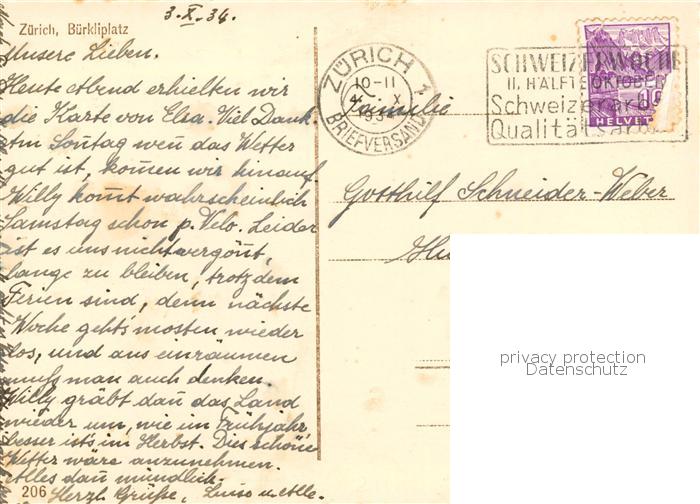 3. X. 34.
Zürich, Bürkliplatz
Unsere Lieben.
Heute abend erhielten wir
die Karte von Elsa. Viel Dank.
Am Sontag wen̄ das Wetter
gut ist, kom̄en wir hinauf
Willy kom̄t wahrscheinlich
Samstag schon p. Velo. Leider
ist es uns nicht vergön̄t,
lange zu bleiben, trotzdem
Ferien sind, denn nächste
Woche geht's mosten wieder
los, und ans einräumen
muß man auch denken.
Willy gräbt dan̄ das Land
wieder um, wie im Frühjahr
besser ist's im Herbst. Dies schöne
Wetter wäre anzunehmen.
Alles dan̄ mündlich.
206 Herzl. Grüße, Luise u. Alle.
ZÜRICH 1
10-11
4. X
1934
BRIEFVERSAND
SCHWEIZERWOCHE
II. HÄLFTE OKTOBER
Schweizerarb
Qualitätsarb
10
HELVET
Familie
Gotthilf Schneider-Weber
privacy protection
Datenschutz